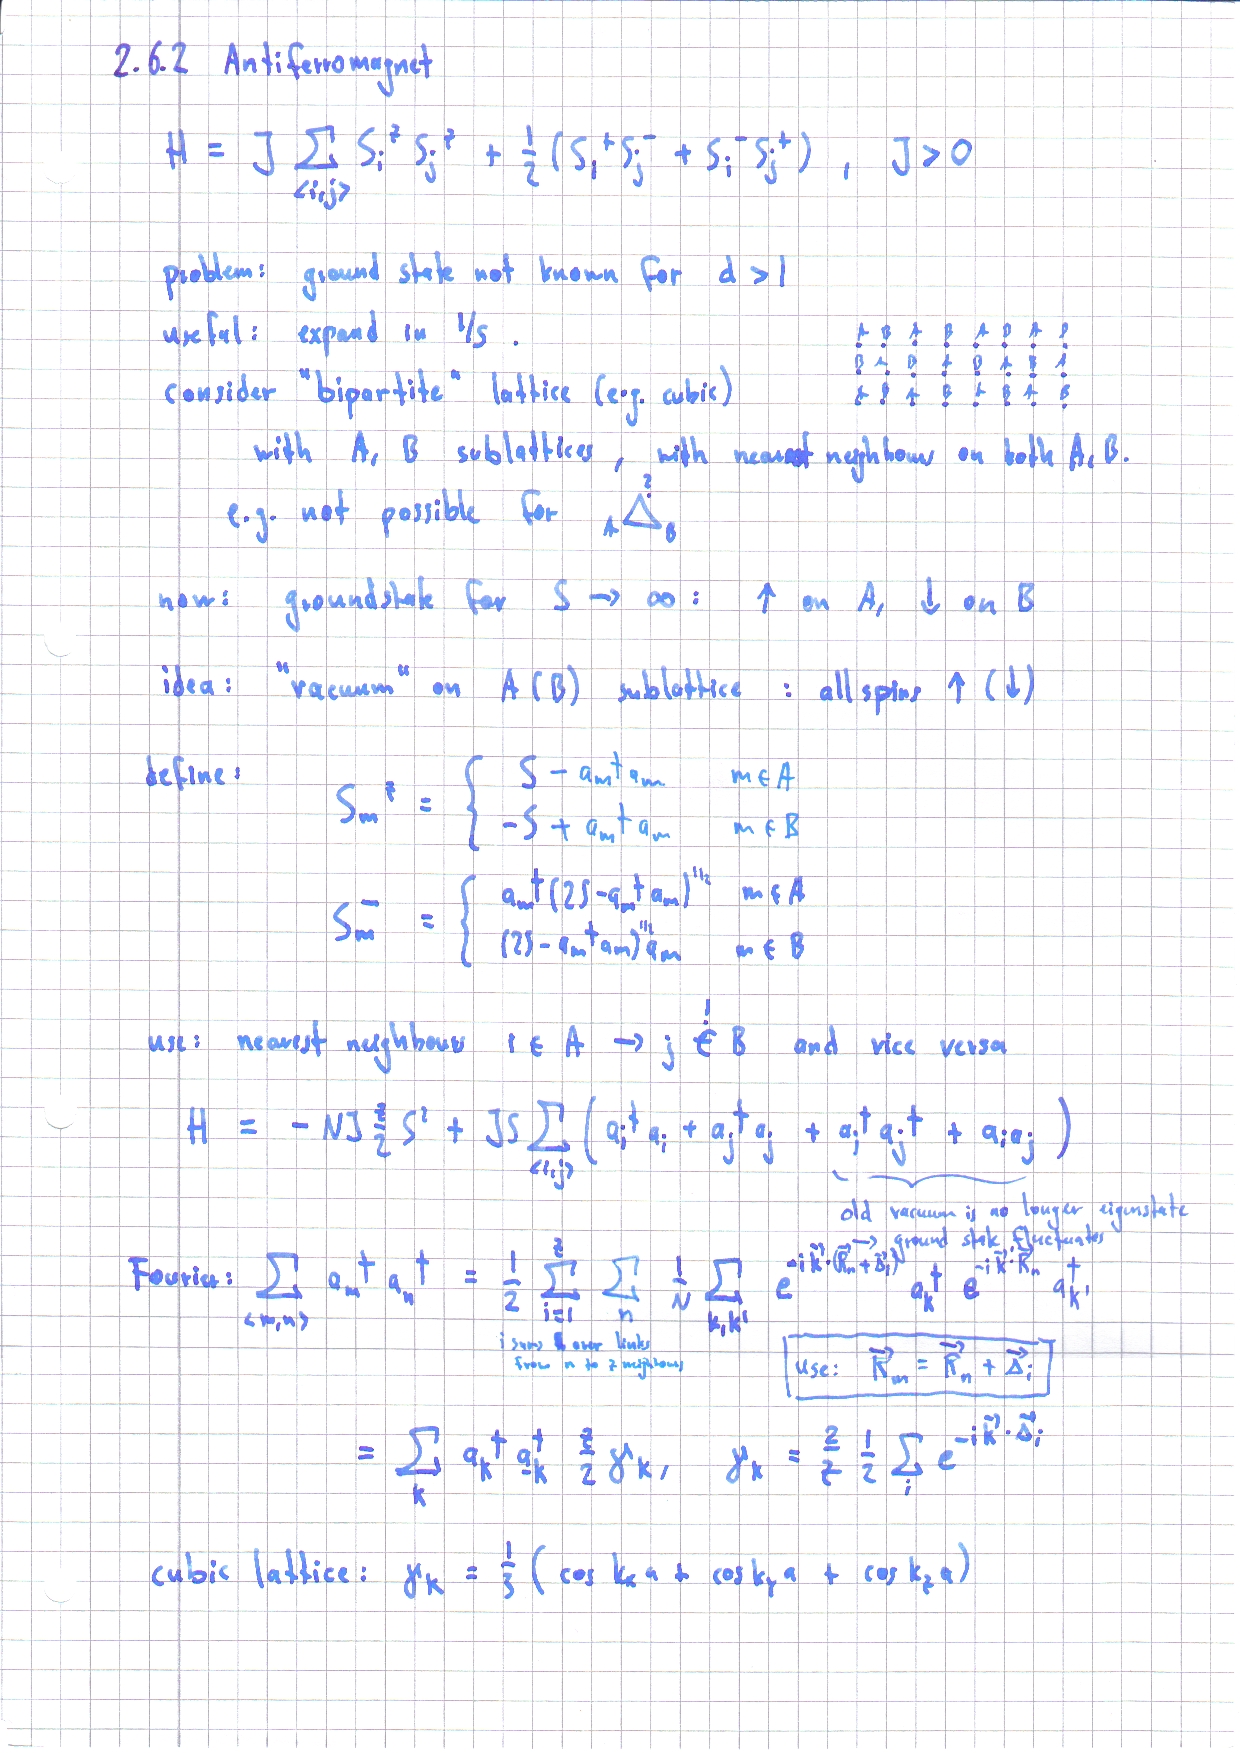 2.6.2 Antiferromagnet
H = J Σ_{<i,j>} S_i^z S_j^z + 1/2 ( S_i^+ S_j^- + S_i^- S_j^+ ) , J > 0
problem: ground state not known for d > 1
useful: expand in 1/S .
A B A B A B A B
consider "bipartite" lattice (e.g. cubic)
B A B A B A B A
A B A B A B A B
with A, B sublattices, with nearest neighbours on both A, B.
e.g. not possible for A △ B ?
now: groundstate for S → ∞ : ↑ on A, ↓ on B
idea: "vacuum" on A (B) sublattice : all spins ↑ (↓)
define: S_m^z = { S - a_m^† a_m m ∈ A
-S + a_m^† a_m m ∈ B
S_m^- = { a_m^† (2S - a_m^† a_m)^{1/2} m ∈ A
(2S - a_m^† a_m)^{1/2} a_m m ∈ B
use: nearest neighbours i ∈ A → j ∈! B and vice versa
H = - NJ z/2 S² + JS Σ_{<i,j>} ( a_i^† a_i + a_j^† a_j + a_i^† a_j^† + a_i a_j )
old vacuum is no longer eigenstate
→ ground state fluctuates
Fourier: Σ_{<m,n>} a_m^† a_n^† = 1/2 Σ_{i=1}^{z} Σ_n 1/N Σ_{k,k'} e^{-i k⃗·(R⃗_n + Δ⃗_i)} a_k^† e^{-i k⃗'·R⃗_n} a_{k'}^†
i sums over links
from n to z neighbours
use: R⃗_m = R⃗_n + Δ⃗_i
= Σ_k a_k^† a_{-k}^† z/2 γ_k, γ_k = 2/z 1/2 Σ_i e^{-i k⃗·Δ⃗_i}
cubic lattice: γ_k = 1/3 ( cos k_x a + cos k_y a + cos k_z a )